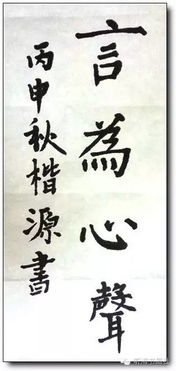 言為心聲
丙申秋楷源書